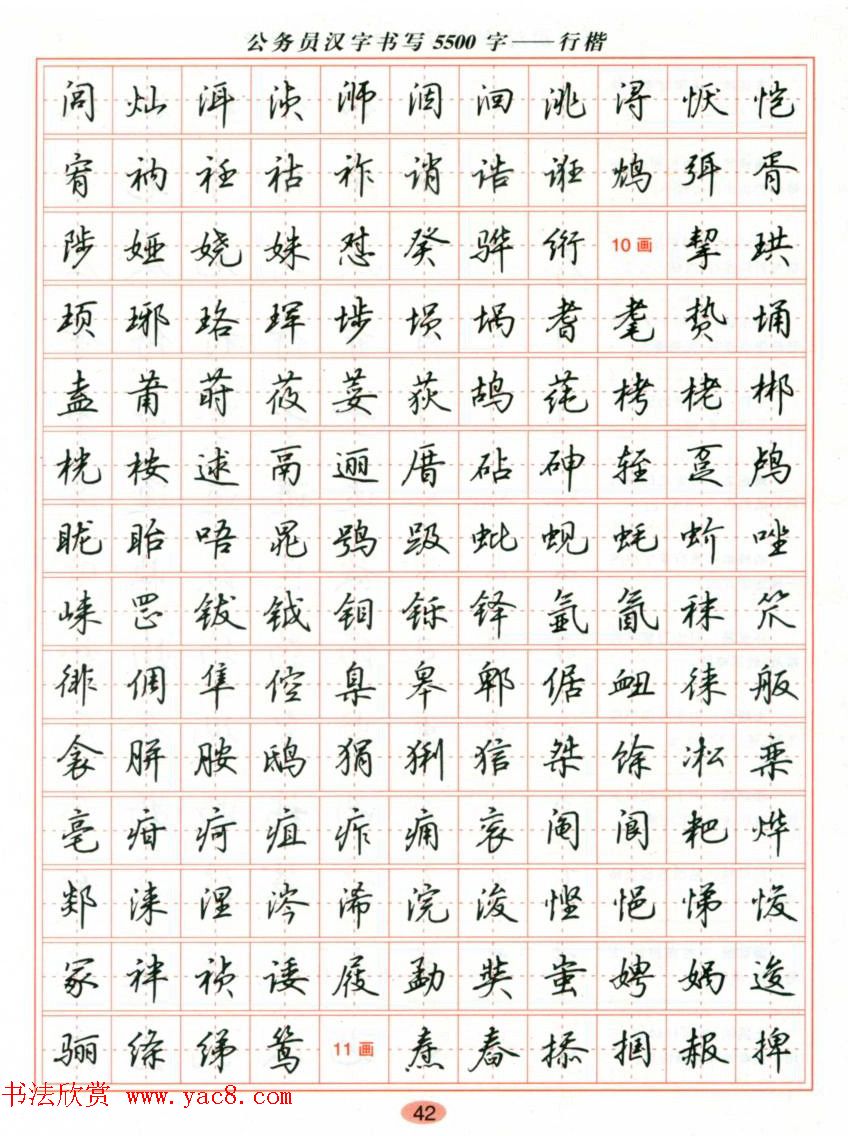 公务员汉字书写 5500 字——行楷
闾 灿 洱 浈 浉 洇 洄 洮 浔 恹 恺
宥 衲 衽 祜 祚 诮 诰 诳 鸩 弭 胥
陟 娅 娆 姝 怼 癸 骅 绗 10 画 挈 珙
顼 珋 珞 珲 埗 埙 埚 耆 耄 贽 埇
盍 莆 莳 莜 荽 荻 鸪 莼 栲 栳 郴
桄 桉 逑 鬲 逦 厝 砧 砷 轾 趸 鸬
眬 眙 唔 晁 鸮 趿 蚍 蚬 蚝 蚧 唑
崃 罡 钹 钺 钼 铄 铎 氩 氤 秣 笊
徘 倜 隼 倥 臬 皋 郫 倨 衄 徕 舨
衾 胼 胺 鸱 狷 猁 狺 桀 馀 凇 栾
亳 疳 疴 疽 痄 痈 衮 阄 阆 耙 烨
郯 涞 涅 涔 浠 浣 浚 悭 悒 悌 悛
冢 袢 祯 诿 屐 勐 奘 蚩 娉 娲 逡
骊 绦 绨 鸶 11 画 焘 舂 掭 掴 赧 捭
书法欣赏 www.yac8.com
42